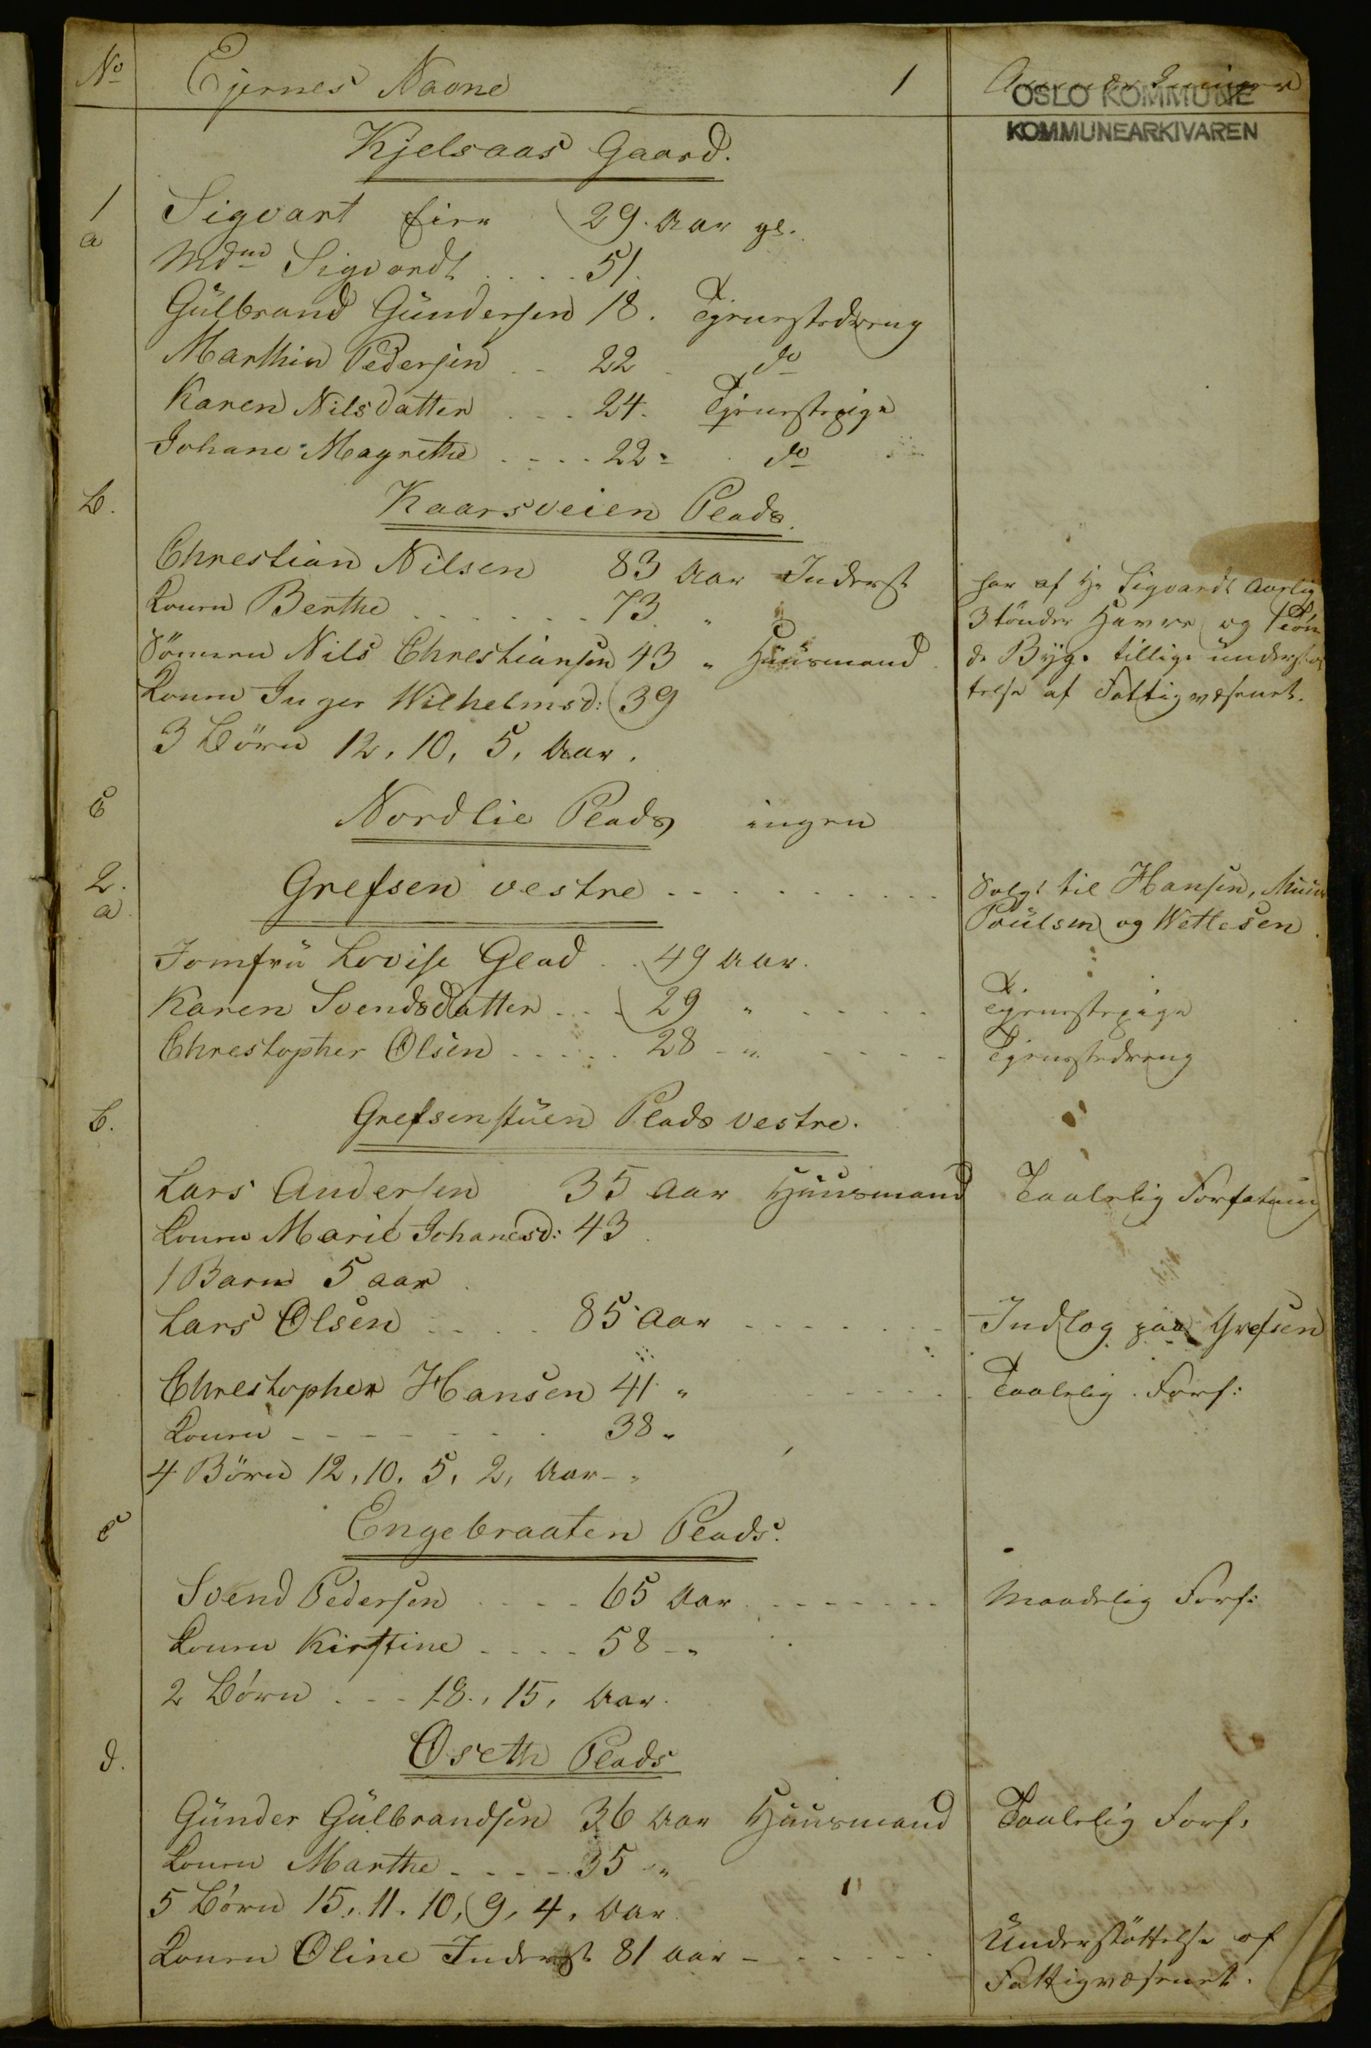 No Ejernes Navne 1 Anmærkninger
OSLO KOMMUNE
KOMMUNEARKIVAREN
Kjelsaas Gaard.
1 Sigvart Eier 29. Aar gl.
a
Mdm Sigvardt . . . . 51.
Gülbrand Gündersen 18. Tjenestedreng
Marthin Pedersen . . 22 do
Karen Nilsdatter . . . 24. Tjenestepige
Johane Magrethe . . . . 22 do
b. Kaarsveien Plads.
Chrestian Nilsen 83 Aar Inderst
Konen Berthe . . . . . . . 73. "
Sönnen Nils Chrestiansen 43 " Huusmand
Konen Inger Wilhelmsd: 39
3 Börn 12, 10, 5, Aar.
har af Hr Sigvardt Aarlig
3 tönder Havre og 1 Tön
de Byg. tillige understöt
telse af Fattigvæsenet.
c Nordlie Plads ingen
2. Grefsen vestre . . . . . . . . . .
a
Solgt til Hansen,
Poulsen og Wettesen.
Jomfrü Lovise Glad . . 49 Aar.
Karen Svendsdatter . . . 29 " . . . . . Tjenestepige
Chrestopher Olsen . . . . . 28 - " . . . . . Tjenestedreng
b. Grefsenstüen Plads vestre.
Lars Andersen 35 Aar Huusmand Taalelig Forfatning
Konen Marie Johanesd: 43.
1 Barn 5 aar.
Lars Olsen . . . . . 85 Aar . . . . . . . . Indlog paa Grefsen
Chrestopher Hansen 41 " . . . . . . Taalelig Forf:
Konen - - - - - - - 38 "
4 Börn 12, 10, 5, 2, Aar - "
c Engebraaten Plads.
Svend Pedersen . . . . 65 Aar . . . . . . . . Maadelig Forf:
Konen Kirstine . . . . 58 - "
2 Börn . . . 18, 15, Aar.
d. Oseth Plads
Günder Gülbrandsen 36 Aar Huusmand Taalelig Forf:
Konen Marthe - - - - 35 "
5 Börn 15, 11, 10, 9, 4, Aar
Konen Oline Inderst 81 aar - . . . . . .
Understöttelse af
Fattigvæsenet.